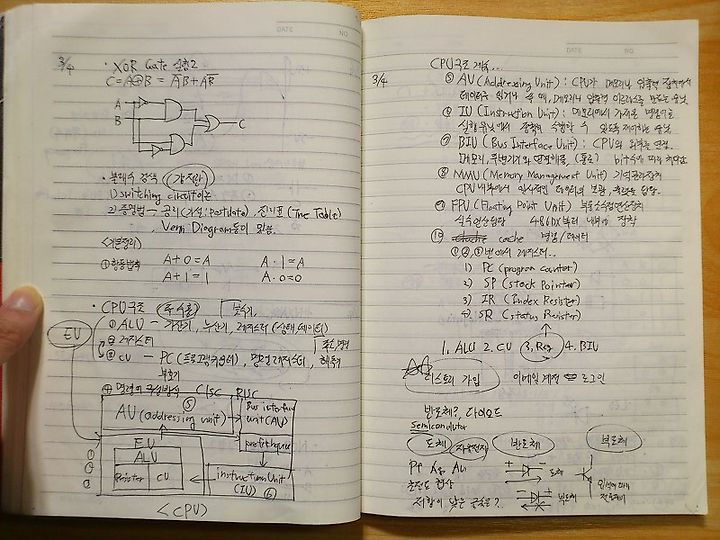 DATE
NO.
3/4
· XOR Gate 실험2
C = A⊕B = A̅B + AB̅
A
B
C
· 불대수 정석
1) switching circuit이론
2) 증명법 - 공리(가설: postulate), 진리표 (True Table)
Venn Diagram등이 있음
<기본정리>
① 항등법칙 A + 0 = A A · 1 = A
A + 1 = 1 A · 0 = 0
· CPU구조
EU
① ALU - 가산기, 누산기, 레지스터 (상태, 데이터)
② 레지스터
③ CU - PC (프로그램카운터), 명령 레지스터, 해독기
④ 명령어 구성방식 CISC RISC
⑤
AU (addressing unit)
Bus interface
unit (AU)
EU
ALU
Resister
CU
①
②
③
instruction Unit
(IU) ⑥
<CPU>
DATE
NO.
CPU구조 계속...
3/4
⑤ AU (Addressing Unit) : CPU가 메모리나 입출력 장치에서
데이터를 읽거나 쓸 때, 메모리나 입출력 어드레스를 만드는 유닛
⑥ IU (Instruction Unit) : 메모리에서 가져온 명령어를
실행유닛에서 수행할 수 있도록 제어하는 유닛
⑦ BIU (Bus Interface Unit) : CPU와 외부를 연결.
메모리, 주변기기와 연결해줌, (통로) bit수에 따라
⑧ MMU (Memory Management Unit) 기억관리장치
CPU 내부에서 일시적인 데이터의 보관, 출력을 담당.
⑨ FPU (Floating Point Unit) 부동소수점연산장치
실수연산담당 486DX부터 내부에 장착
⑩ cache 명령/데이터
①,②,③번에서 레지스터..
1) PC (program counter)
2) SP (stack Pointer)
3) IR (Index Resister)
4) SR (status Resister)
1. ALU 2. CU 3. Reg 4. BIU
가입 이메일 계정 로그인
반도체?, 다이오드
Semiconductor
도체 자유전자 반도체 부도체
도체
부도체
저항이 낮은 금속은?